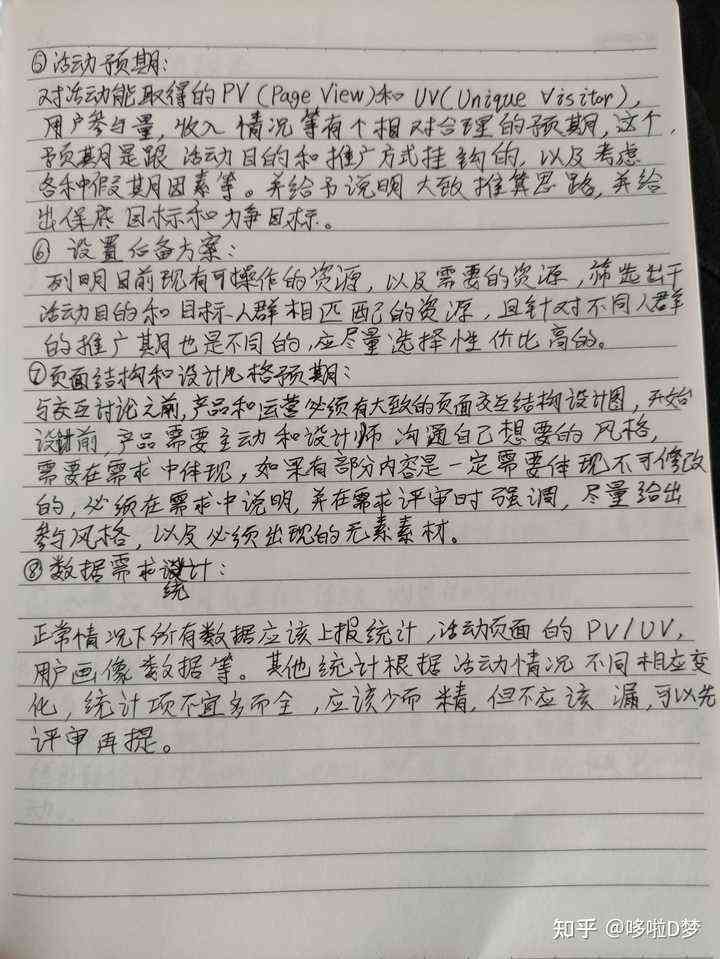 ⑤活动预期：
对活动能取得的PV（Page View)和 UV(Unique Visitor)，
用户参与量，收入情况等有个相对合理的预期，这个
预期是跟活动目的和推广方式挂钩的，以及考虑
各种假期因素等。并给予说明大致推算思路，并给
出保底目标和力争目标。
⑥ 设置后备方案：
列明目前现有可操作的资源，以及需要的资源，筛选出于
活动目的和目标人群相匹配的资源，且针对不同人群
的推广期也是不同的，应尽量选择性价比高的。
⑦页面结构和设计风格预期：
与交互讨论之前，产品和运营必须有大致的页面交互结构设计图，开始
设计前，产品需要主动和设计师沟通自己想要的风格，
需要在需求中体现，如果有部分内容是一定需要体现不可修改
的，必须在需求中说明，并在需求评审时强调，尽量给出
参与风格，以及必须出现的元素素材。
⑧数据需求统计：
正常情况下所有数据应该上报统计，活动页面的PV/UV，
用户画像数据等。其他统计根据活动情况不同相应变
化，统计项不宜多而全，应该少而精，但不应该漏，可以先
评审再提。
动。
知乎 @哆啦D梦